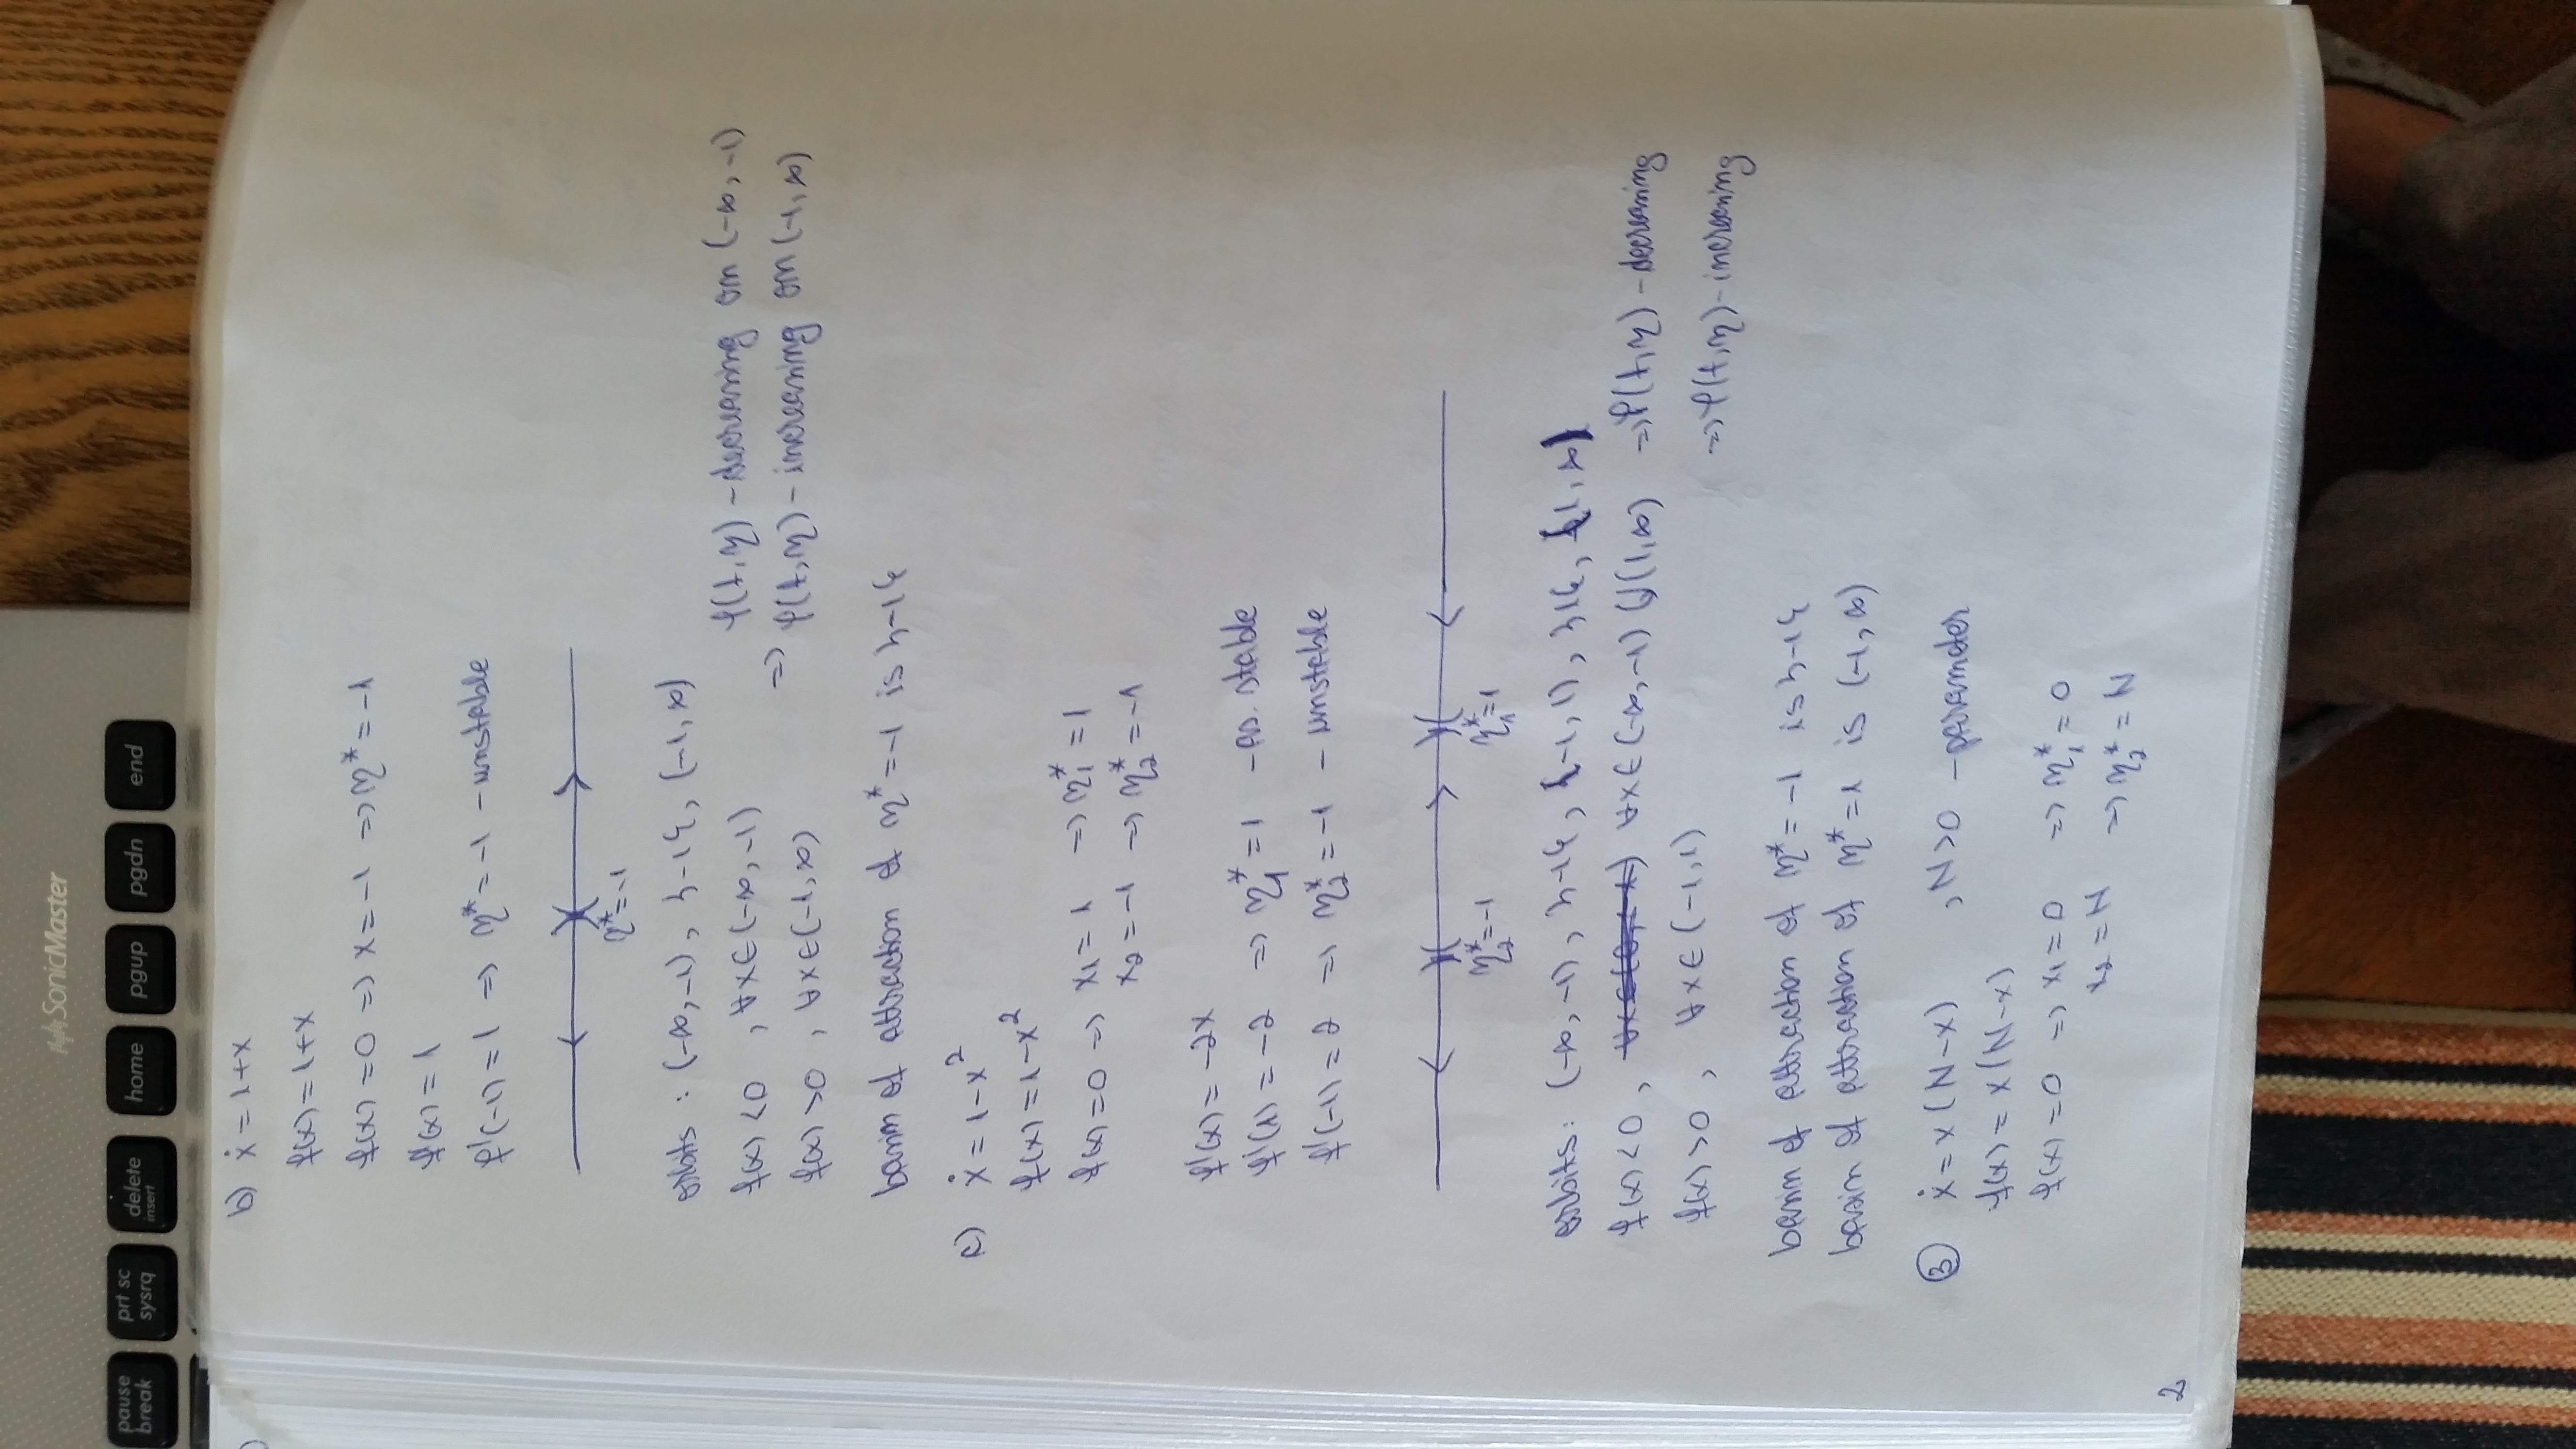 SonicMaster
pause break
prt sc sysrq
delete insert
home
pgup
pgdn
end
b) ẋ = 1+x
f(x) = 1+x
f(x) = 0 => x = -1 => η* = -1
f'(x) = 1
f'(-1) = 1 => η* = -1 - unstable
η* = -1
orbits : (-∞, -1), {-1}, (-1, ∞)
f(x) < 0 , ∀x∈(-∞, -1)
f(x) > 0 , ∀x∈(-1, ∞)
=> φ(t,η) - decreasing on (-∞, -1)
φ(t,η) - increasing on (-1, ∞)
basin of attraction of η* = -1 is {-1}
c) ẋ = 1-x²
f(x) = 1-x²
f(x) = 0 => x₁ = 1 => η₁* = 1
x₂ = -1 => η₂* = -1
f'(x) = -2x
f'(1) = -2 => η₁* = 1 - as. stable
f'(-1) = 2 => η₂* = -1 - unstable
η₂* = -1 η₁* = 1
orbits: (-∞, -1), {-1}, (-1, 1), {1}, (1, ∞)
f(x) < 0 , ∀x∈(-∞, -1) ∪ (1, ∞) => φ(t,η) - decreasing
f(x) > 0 , ∀x∈(-1, 1) => φ(t,η) - increasing
basin of attraction of η* = -1 is {-1}
basin of attraction of η* = 1 is (-1, ∞)
③ ẋ = x(N-x) , N>0 - parameter
f(x) = x(N-x)
f(x) = 0 => x₁ = 0 => η₁* = 0
x₂ = N => η₂* = N
2